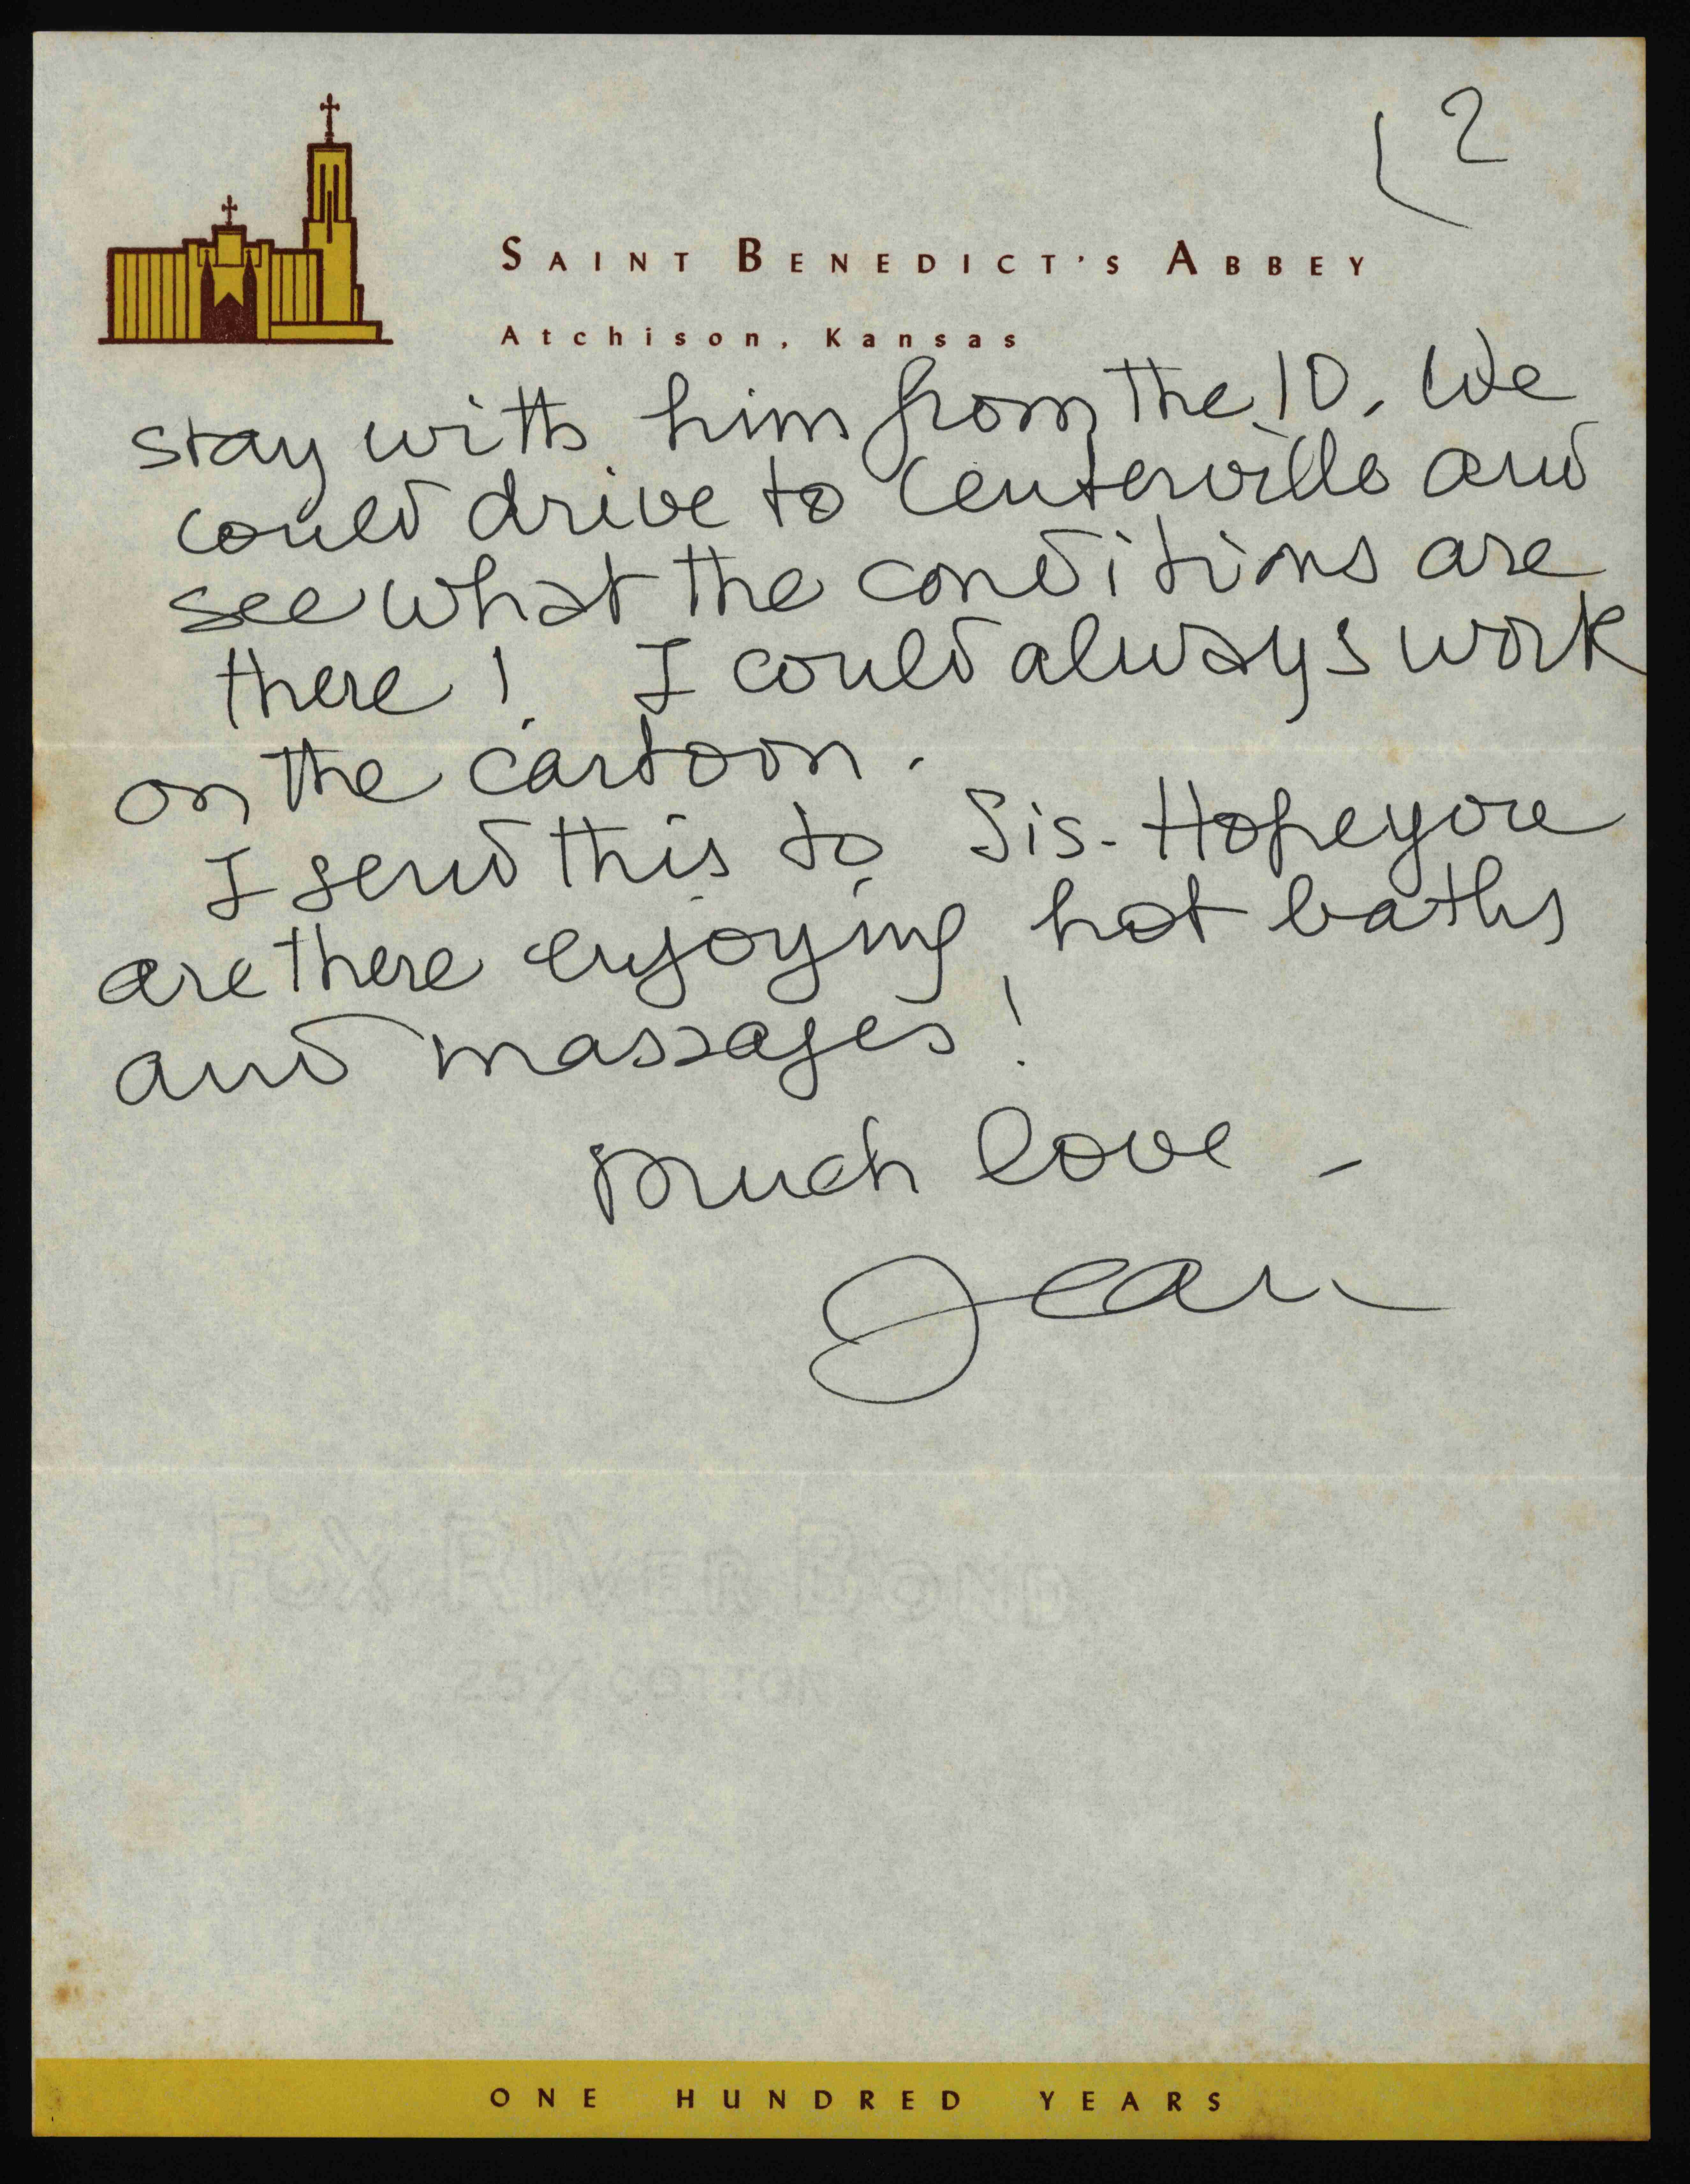 2
SAINT BENEDICT'S ABBEY
Atchison, Kansas
stay with him from the 10. We
could drive to Centerville and
see what the conditions are
there! I could always work
on the cartoon.
I send this to Sis- Hope you
are there enjoying hot baths
and massages!
Much love -
Jean
FOX RIVER BOND
25% COTTON
ONE HUNDRED YEARS